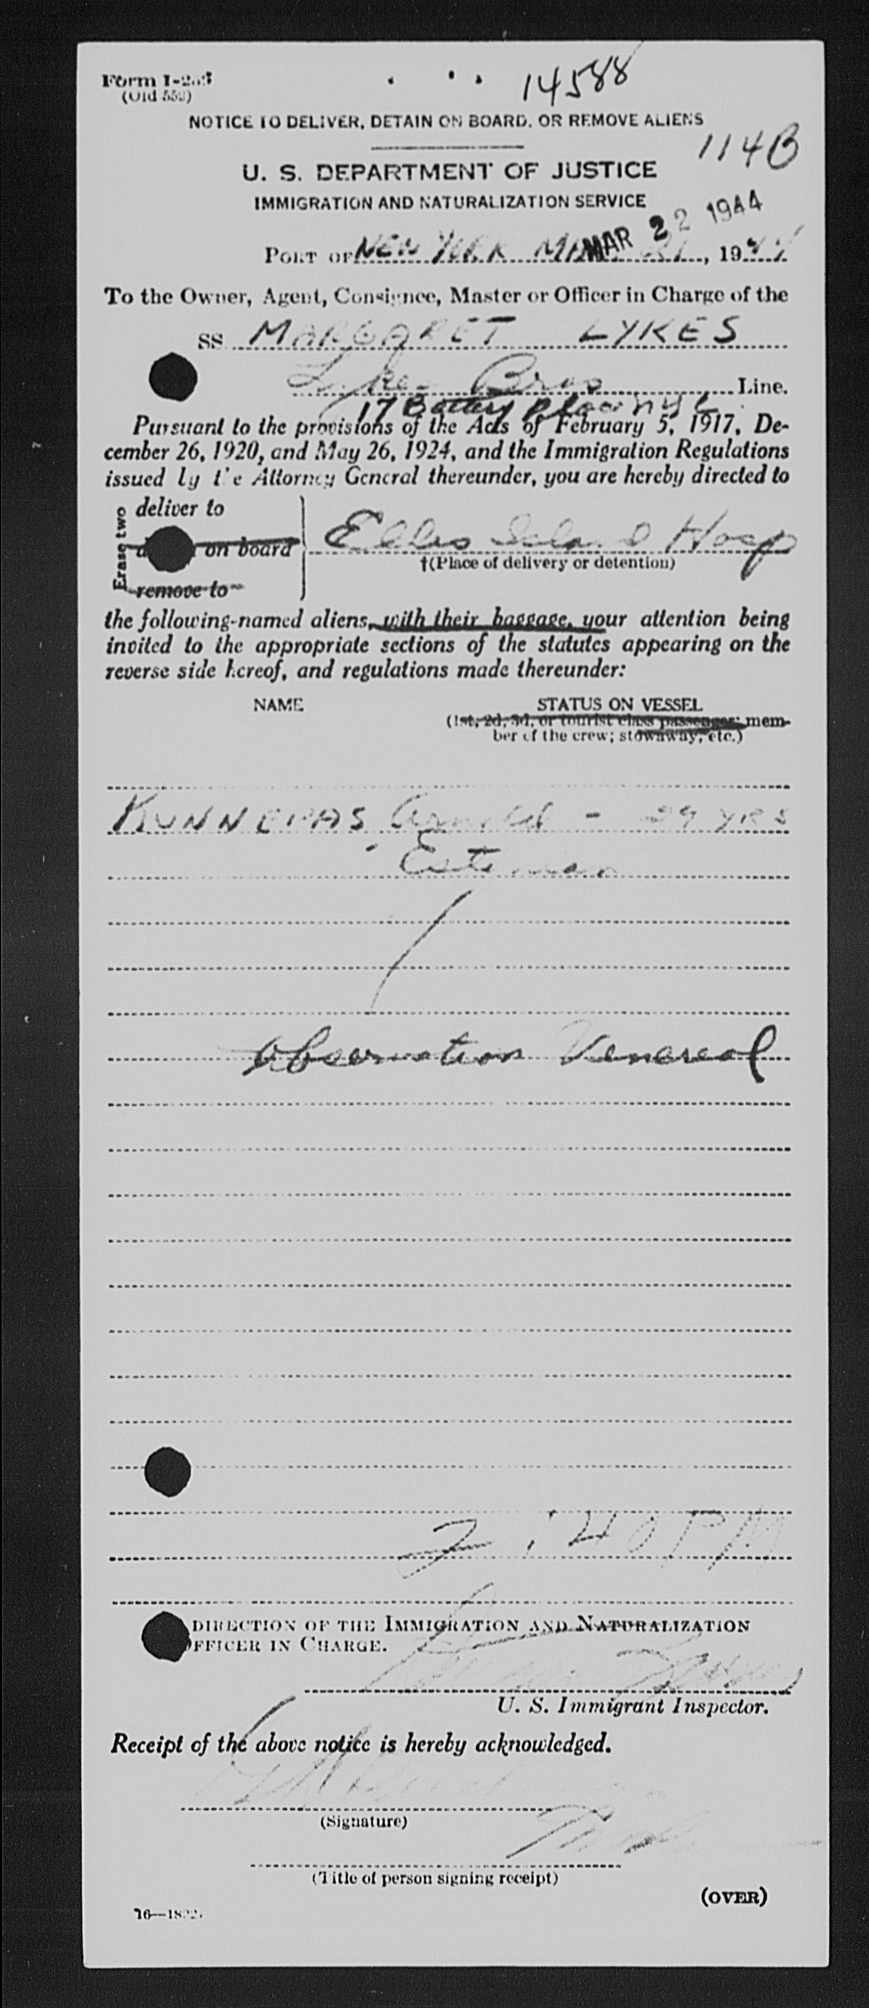 Form I-259
(Old 553)
14588
NOTICE TO DELIVER, DETAIN ON BOARD, OR REMOVE ALIENS
114B
U. S. DEPARTMENT OF JUSTICE
IMMIGRATION AND NATURALIZATION SERVICE
MAR 22 1944
PORT OF NEW YORK 21, 1944
To the Owner, Agent, Consignee, Master or Officer in Charge of the
SS MARGARET LYKES
Lykes Bros Line.
17 Battery Place nyc
Pursuant to the provisions of the Acts of February 5, 1917, De-
cember 26, 1920, and May 26, 1924, and the Immigration Regulations
issued by the Attorney General thereunder, you are hereby directed to
Erase two
deliver to
on board
remove to
Ellis Island Hosp
†(Place of delivery or detention)
the following-named aliens, with their baggage, your attention being
invited to the appropriate sections of the statutes appearing on the
reverse side hereof, and regulations made thereunder:
NAME
STATUS ON VESSEL
(1st, 2d, 3d, or tourist class passenger; mem-
ber of the crew; stowaway, etc.)
KUNNEPAS Arnold - 29 YRS
Estonian
Observation Venereal
2:40 PM
DIRECTION OF THE IMMIGRATION AND NATURALIZATION
OFFICER IN CHARGE.
U. S. Immigrant Inspector.
Receipt of the above notice is hereby acknowledged.
(Signature)
(Title of person signing receipt)
(OVER)